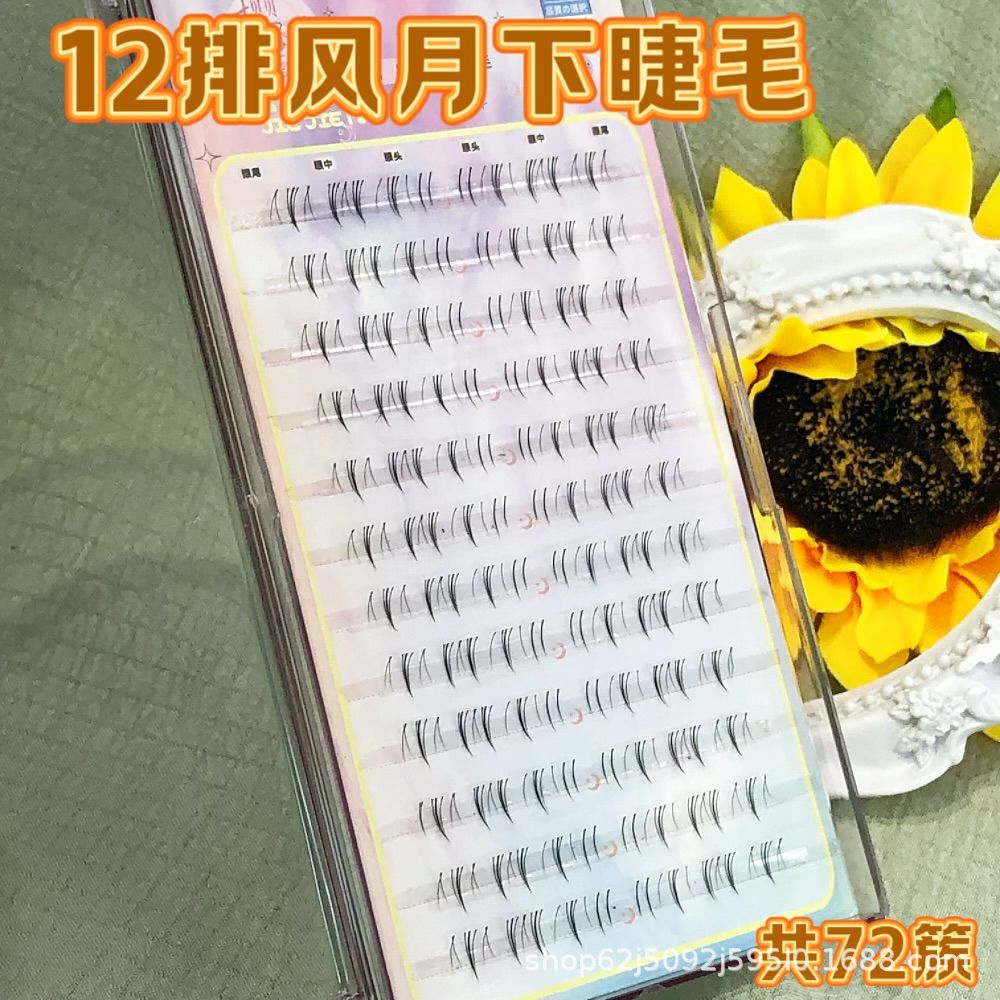 品質の選択
12排风月下睫毛
眼尾 眼中 眼头 眼头 眼中 眼尾
共72簇
shop62j5092j595l0.1688.com